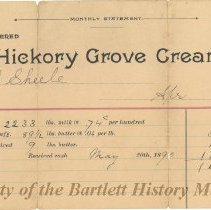 MONTHLY STATEMENT.
ERED
Hickory Grove Crea
Sheele
2233 lbs. milk in 74c per hundred
89½ lbs. butter in 04 per lb.
ived 9 lbs. butter.
Received cash May 20th, 189
ty of the Bartlett History M